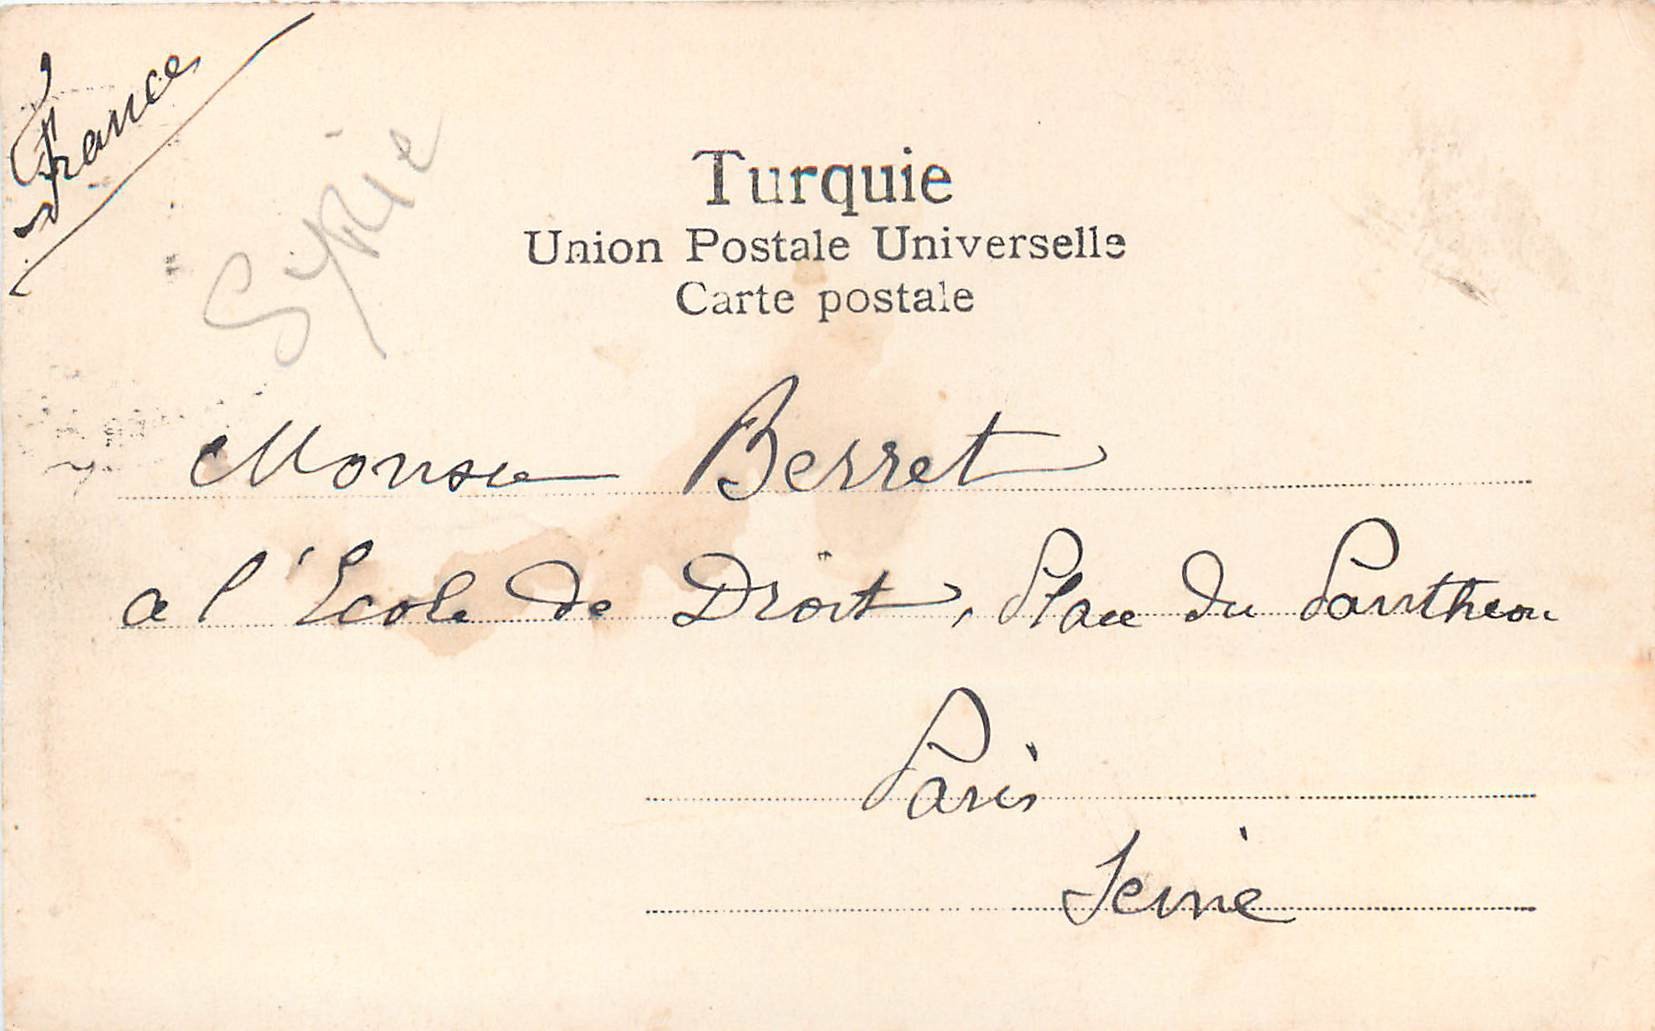 France
Syrie
Turquie
Union Postale Universelle
Carte postale
Monsieur Berret
a l'École de Droit, Place du Pantheon
Paris
Seine